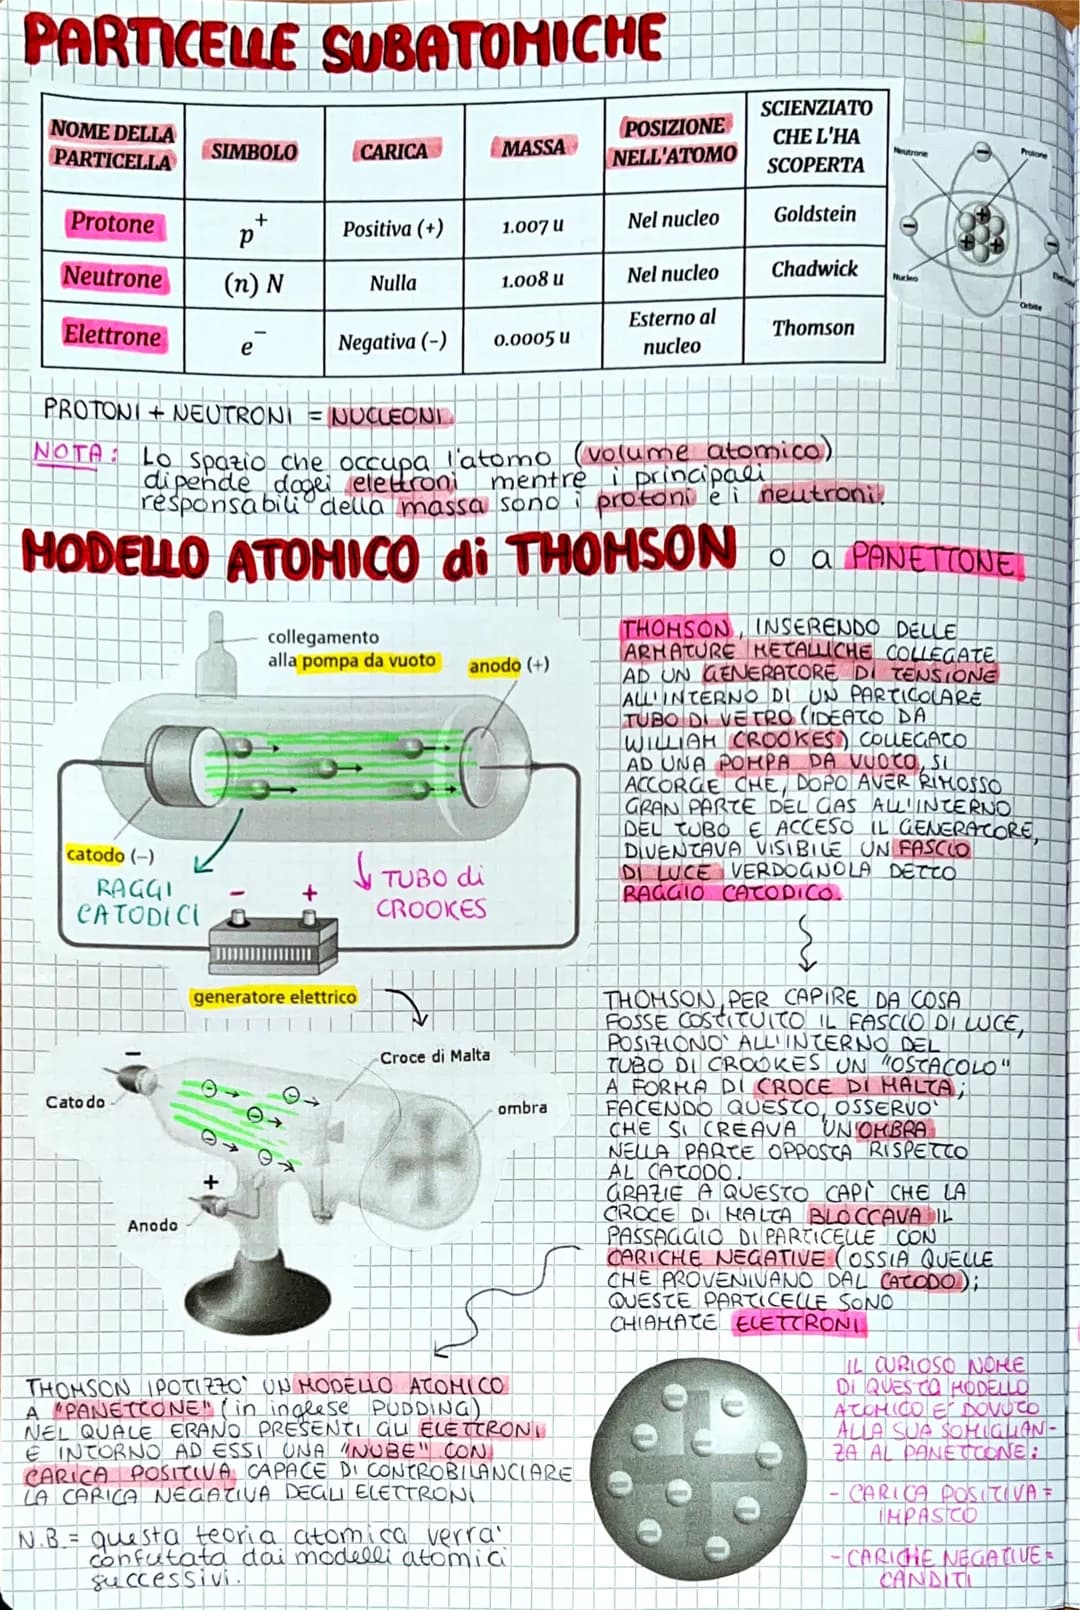 PARTICELLE SUBATOMICHE
NOME DELLA PARTICELLA SIMBOLO CARICA MASSA POSIZIONE NELL'ATOMO SCIENZIATO CHE L'HA SCOPERTA
Protone p+ Positiva (+) 1.007 u Nel nucleo Goldstein
Neutrone (n) N Nulla 1.008 u Nel nucleo Chadwick
Elettrone e- Negativa (-) 0.0005 u Esterno al nucleo Thomson
Neutrone
Protone
Nucleo
Orbite
PROTONI + NEUTRONI = NUCLEONI
NOTA: Lo spazio che occupa l'atomo (volume atomico)
dipende dagli elettroni mentre i principali
responsabili della massa sono i protoni e i neutroni.
MODELLO ATOMICO di THOMSON o a PANETTONE
collegamento
alla pompa da vuoto
anodo (+)
catodo (-)
RAGGI
CATODICI
TUBO di
CROOKES
- +
generatore elettrico
THOMSON, INSERENDO DELLE
ARMATURE METALLICHE COLLEGATE
AD UN GENERATORE DI TENSIONE
ALL'INTERNO DI UN PARTICOLARE
TUBO DI VETRO (IDEATO DA
WILLIAM CROOKES) COLLEGATO
AD UNA POMPA DA VUOTO, SI
ACCORGE CHE, DOPO AVER RIMOSSO
GRAN PARTE DEL GAS ALL'INTERNO
DEL TUBO E ACCESO IL GENERATORE,
DIVENTAVA VISIBILE UN FASCIO
DI LUCE VERDOGNOLA DETTO
RAGGIO CATODICO.
THOMSON, PER CAPIRE DA COSA
FOSSE COSTITUITO IL FASCIO DI LUCE,
POSIZIONO' ALL'INTERNO DEL
TUBO DI CROOKES UN "OSTACOLO"
A FORMA DI CROCE DI MALTA;
FACENDO QUESTO, OSSERVO'
CHE SI CREAVA UN'OMBRA
NELLA PARTE OPPOSTA RISPETTO
AL CATODO.
GRAZIE A QUESTO CAPÌ CHE LA
CROCE DI MALTA BLOCCAVA IL
PASSAGGIO DI PARTICELLE CON
CARICHE NEGATIVE (OSSIA QUELLE
CHE PROVENIVANO DAL CATODO);
QUESTE PARTICELLE SONO
CHIAMATE ELETTRONI
-
Catodo
Croce di Malta
ombra
+
Anodo
THOMSON IPOTIZZO' UN MODELLO ATOMICO
A "PANETTONE" (in inglese PUDDING)
NEL QUALE ERANO PRESENTI GLI ELETTRONI
E INTORNO AD ESSI UNA "NUBE" CON
CARICA POSITIVA CAPACE DI CONTROBILANCIARE
LA CARICA NEGATIVA DEGLI ELETTRONI
N.B.= questa teoria atomica verra'
confutata dai modelli atomici
successivi.
IL CURIOSO NOME
DI QUESTO MODELLO
ATOMICO E' DOVUTO
ALLA SUA SOMIGLIAN-
ZA AL PANETTONE:
- CARICA POSITIVA =
IMPASTO
- CARICHE NEGATIVE =
CANDITI